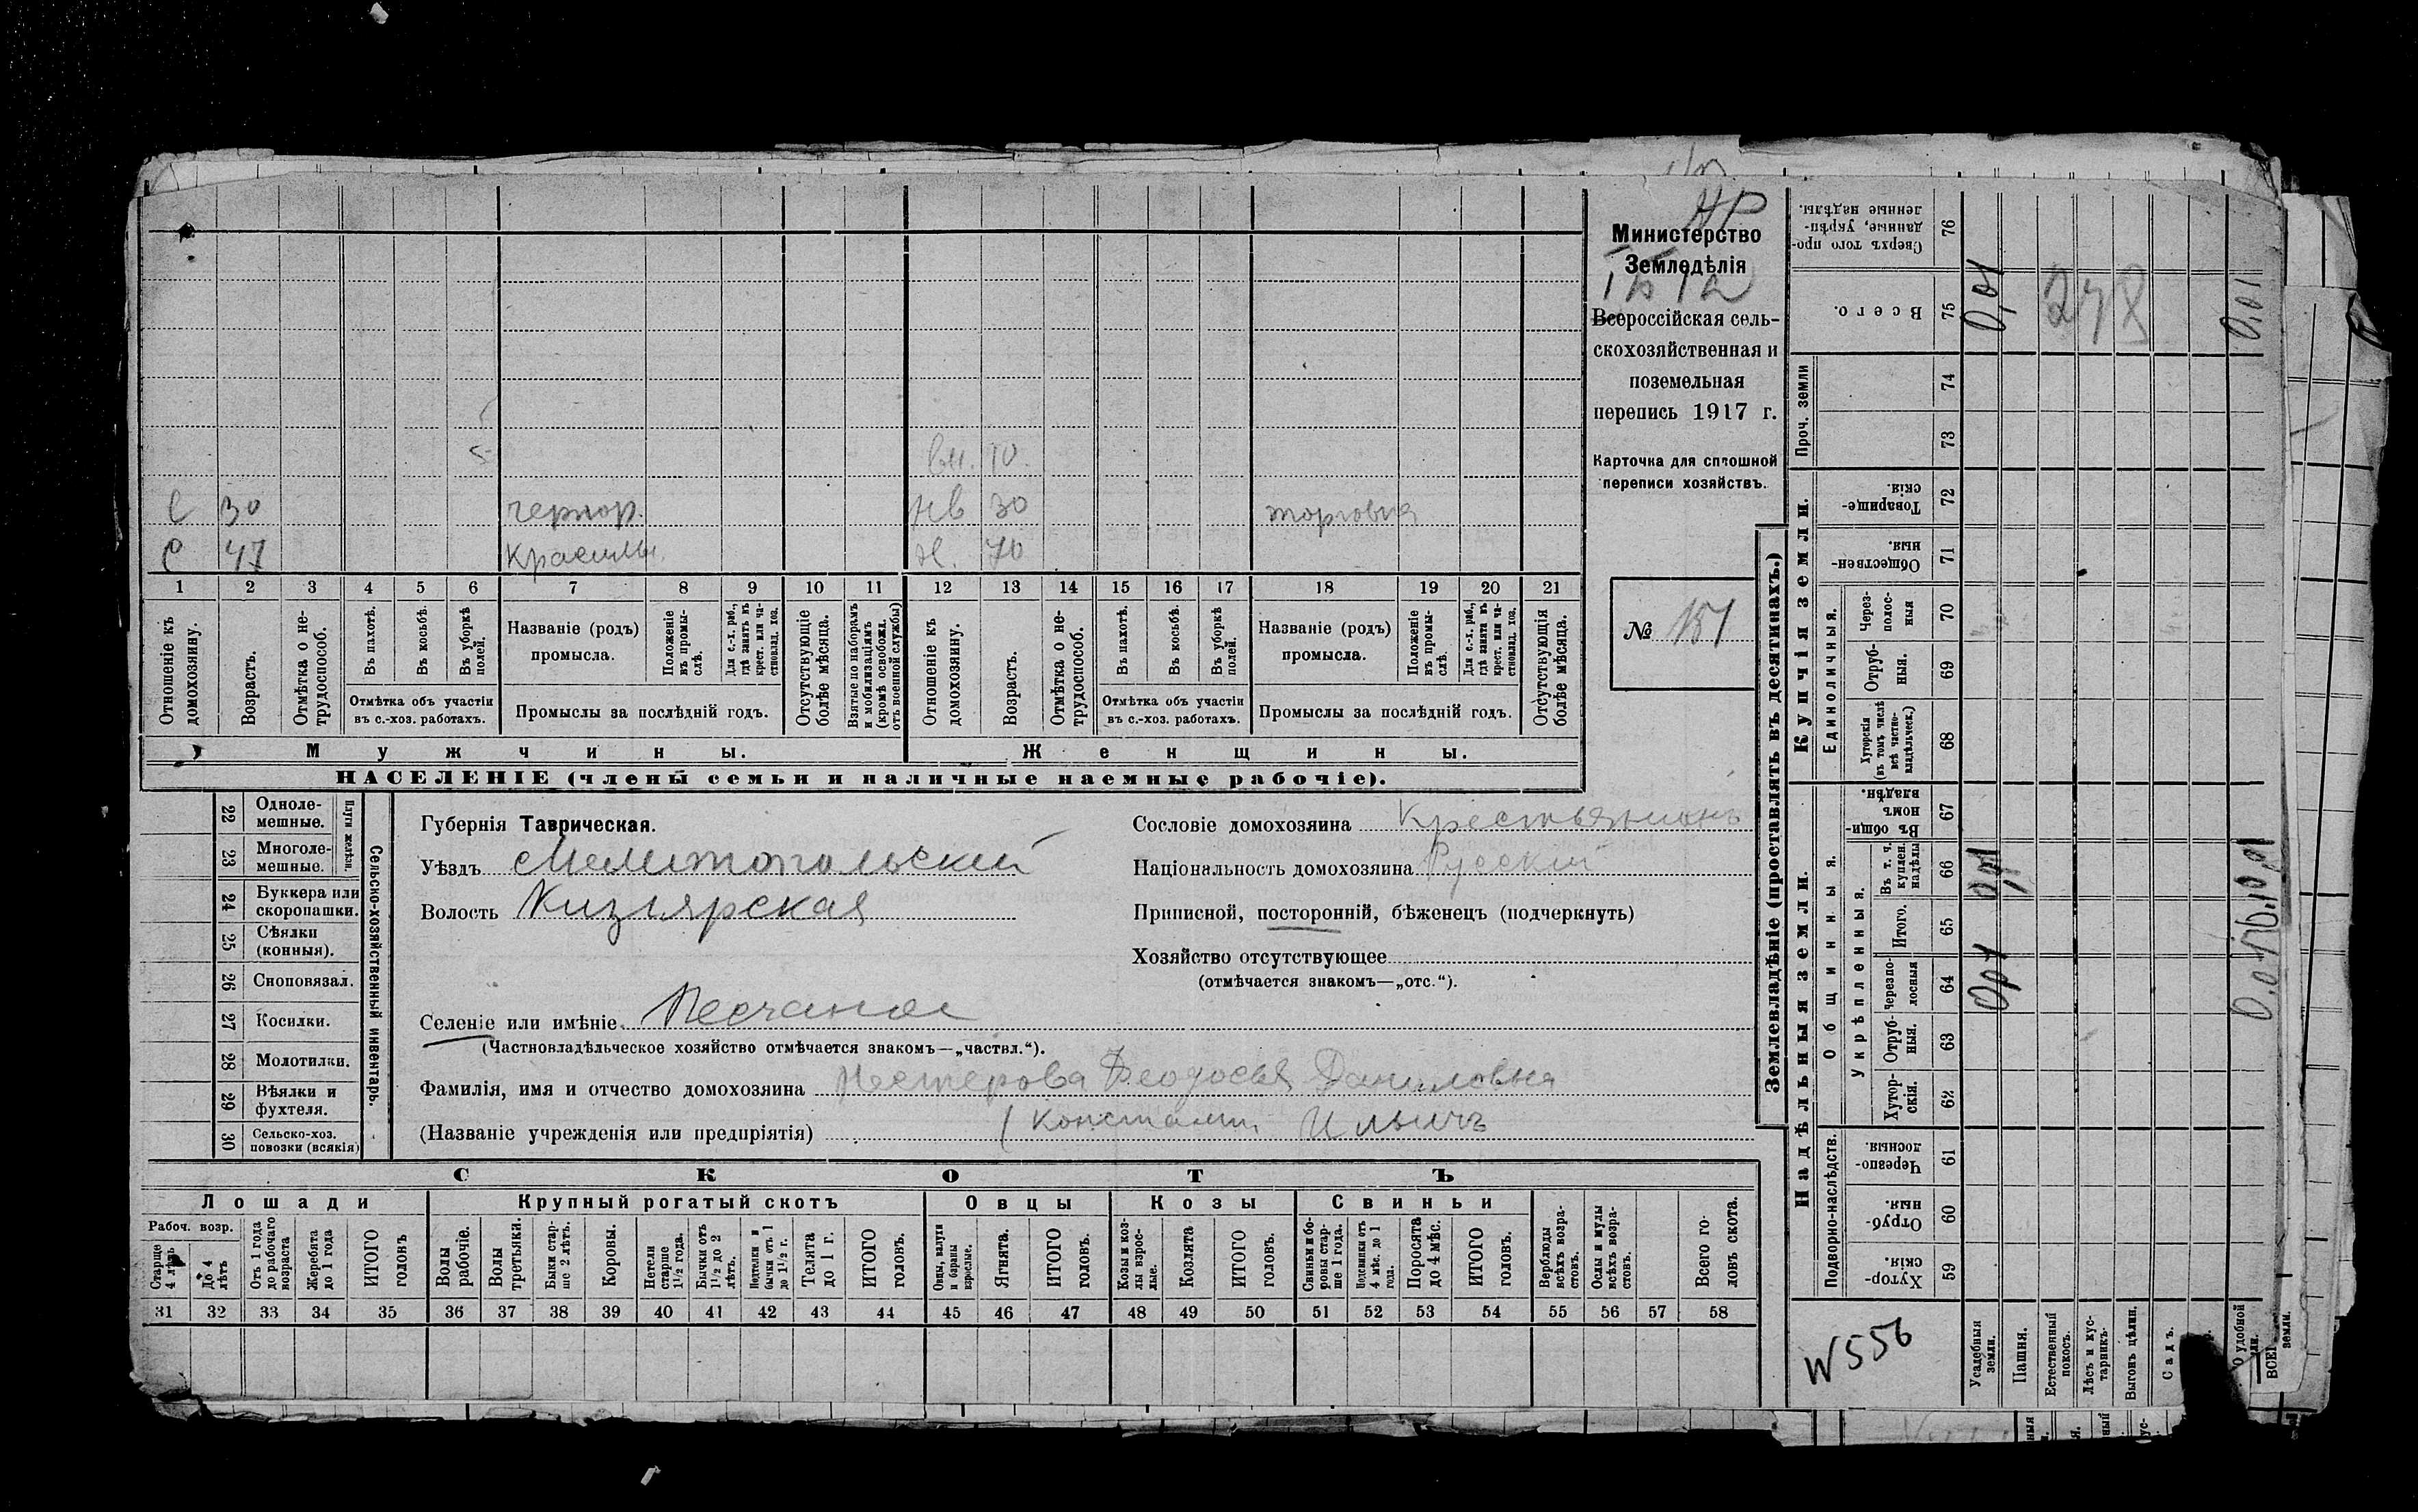 Министерство
Земледѣлія
Всероссійская сель-
скохозяйственная и
поземельная
перепись 1917 г.
Карточка для сплошной
переписи хозяйствъ.
№ 151
вн. 10.
С 30 чернор. Нв 30 торговля
С 47 Н. 70
1 2 3 4 5 6 7 8 9 10 11 12 13 14 15 16 17 18 19 20 21
Отношеніе къ домохозяину.
Возрастъ.
Отмѣтка о не-трудоспособ.
Въ пахотѣ.
Въ косьбѣ.
Въ уборкѣ полей.
Отмѣтка объ участіи
въ с.-хоз. работахъ.
Названіе (родъ)
промысла.
Положеніе въ промы-слѣ.
Для с.-х. раб., гдѣ занятъ въ крест. или ча-стновлад. хоз.
Промыслы за послѣдній годъ.
Отсутствующіе болѣе мѣсяца.
Взятые по наборамъ и мобилизаціямъ (кромѣ освобожд. отъ военной службы)
Отношеніе къ домохозяину.
Возрастъ.
Отмѣтка о не-трудоспособ.
Въ пахотѣ.
Въ косьбѣ.
Въ уборкѣ полей.
Отмѣтка объ участіи
въ с.-хоз. работахъ.
Названіе (родъ)
промысла.
Положеніе въ промы-слѣ.
Для с.-х. раб., гдѣ занята въ крест. или ча-стновлад. хоз.
Промыслы за послѣдній годъ.
Отсутствующія болѣе мѣсяца.
Мужчины. Женщины.
НАСЕЛЕНІЕ (члены семьи и наличные наемные рабочіе).
22 Одноле-мешные.
23 Многоле-мешные.
Плуги желѣзн.
24 Буккера или скоропашки.
25 Сѣялки (конныя).
26 Сноповязал.
27 Косилки.
28 Молотилки.
29 Вѣялки и фухтеля.
30 Сельско-хоз. повозки (всякія)
Сельско-хозяйственный инвентарь.
Губернія Таврическая.
Уѣздъ Мелитопольскій
Волость Кизіярская
Сословіе домохозяина Крестьянинъ
Національность домохозяина Русскій
Приписной, посторонній, бѣженецъ (подчеркнуть)
Хозяйство отсутствующее
(отмѣчается знакомъ—„отс.“).
Селеніе или имѣніе Песчаное
(Частновладѣльческое хозяйство отмѣчается знакомъ—„частвл.“).
Фамилія, имя и отчество домохозяина Нестерова Феодосья Даниловна
(Названіе учрежденія или предпріятія) (Констант. Ильичъ
СКОТЪ
Лошади Крупный рогатый скотъ Овцы Козы Свиньи
Рабоч. возр.
Старше 4 лѣтъ
До 4 лѣтъ
Отъ 1 года до рабочаго возраста
Жеребята до 1 года
ИТОГО головъ
Волы рабочіе.
Волы третьяки.
Быки стар-ше 2 лѣтъ.
Коровы.
Нетели старше 1½ года.
Бычки отъ 1½ до 2 лѣтъ.
Подтелки и бычки отъ 1 до 1½ г.
Телята до 1 г.
ИТОГО головъ.
Овцы, валухи и бараны взрослые.
Ягнята.
ИТОГО головъ.
Козы и коз-лы взрос-лые.
Козлята
ИТОГО головъ.
Свиньи и бо-ровы стар-ше 1 года.
Подсвинки отъ 4 мѣс. до 1 года.
Поросята до 4 мѣс.
ИТОГО головъ.
Верблюды всѣхъ возра-стовъ.
Ослы и мулы всѣхъ возра-стовъ.
Всего го-ловъ скота.
31 32 33 34 35 36 37 38 39 40 41 42 43 44 45 46 47 48 49 50 51 52 53 54 55 56 57 58
Землевладѣніе (проставлять въ десятинахъ.)
Надѣльныя земли. Купчія земли. Проч. земли
Подворно-наслѣдств.
Общинныя.
Укрѣпленныя.
Единоличныя.
Хутор-скія. 59
Отруб-ныя. 60
Черезпо-лосныя. 61
Хутор-скія. 62
Отруб-ныя. 63
Черезпо-лосныя 64
Итого. 65
Въ т. ч. куплен. надѣлы 66
Въ общи-номъ владѣн. 67
Хуторскія (въ томъ числѣ всѣ частно-владѣльческ.) 68
Отруб-ныя. 69
Через-полос-ныя 70
Обществен-ныя. 71
Товарище-скія. 72
73
74
Всего. 75
Сверхъ того про-данные, укрѣп-ленные надѣлы. 76
Усадебныя земли.
0,01
0,01
Пашня.
Естественный покосъ.
Лѣсъ и кус-тарникъ.
Выгонъ цѣлин.
Садъ.
О удобной
0,01
278
W556